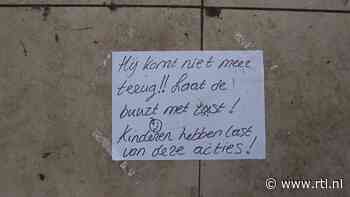 Hij komt niet meer
terug!! Laat de
buurt met rust!
Kinderen hebben last
van deze acties!
www.rtl.nl